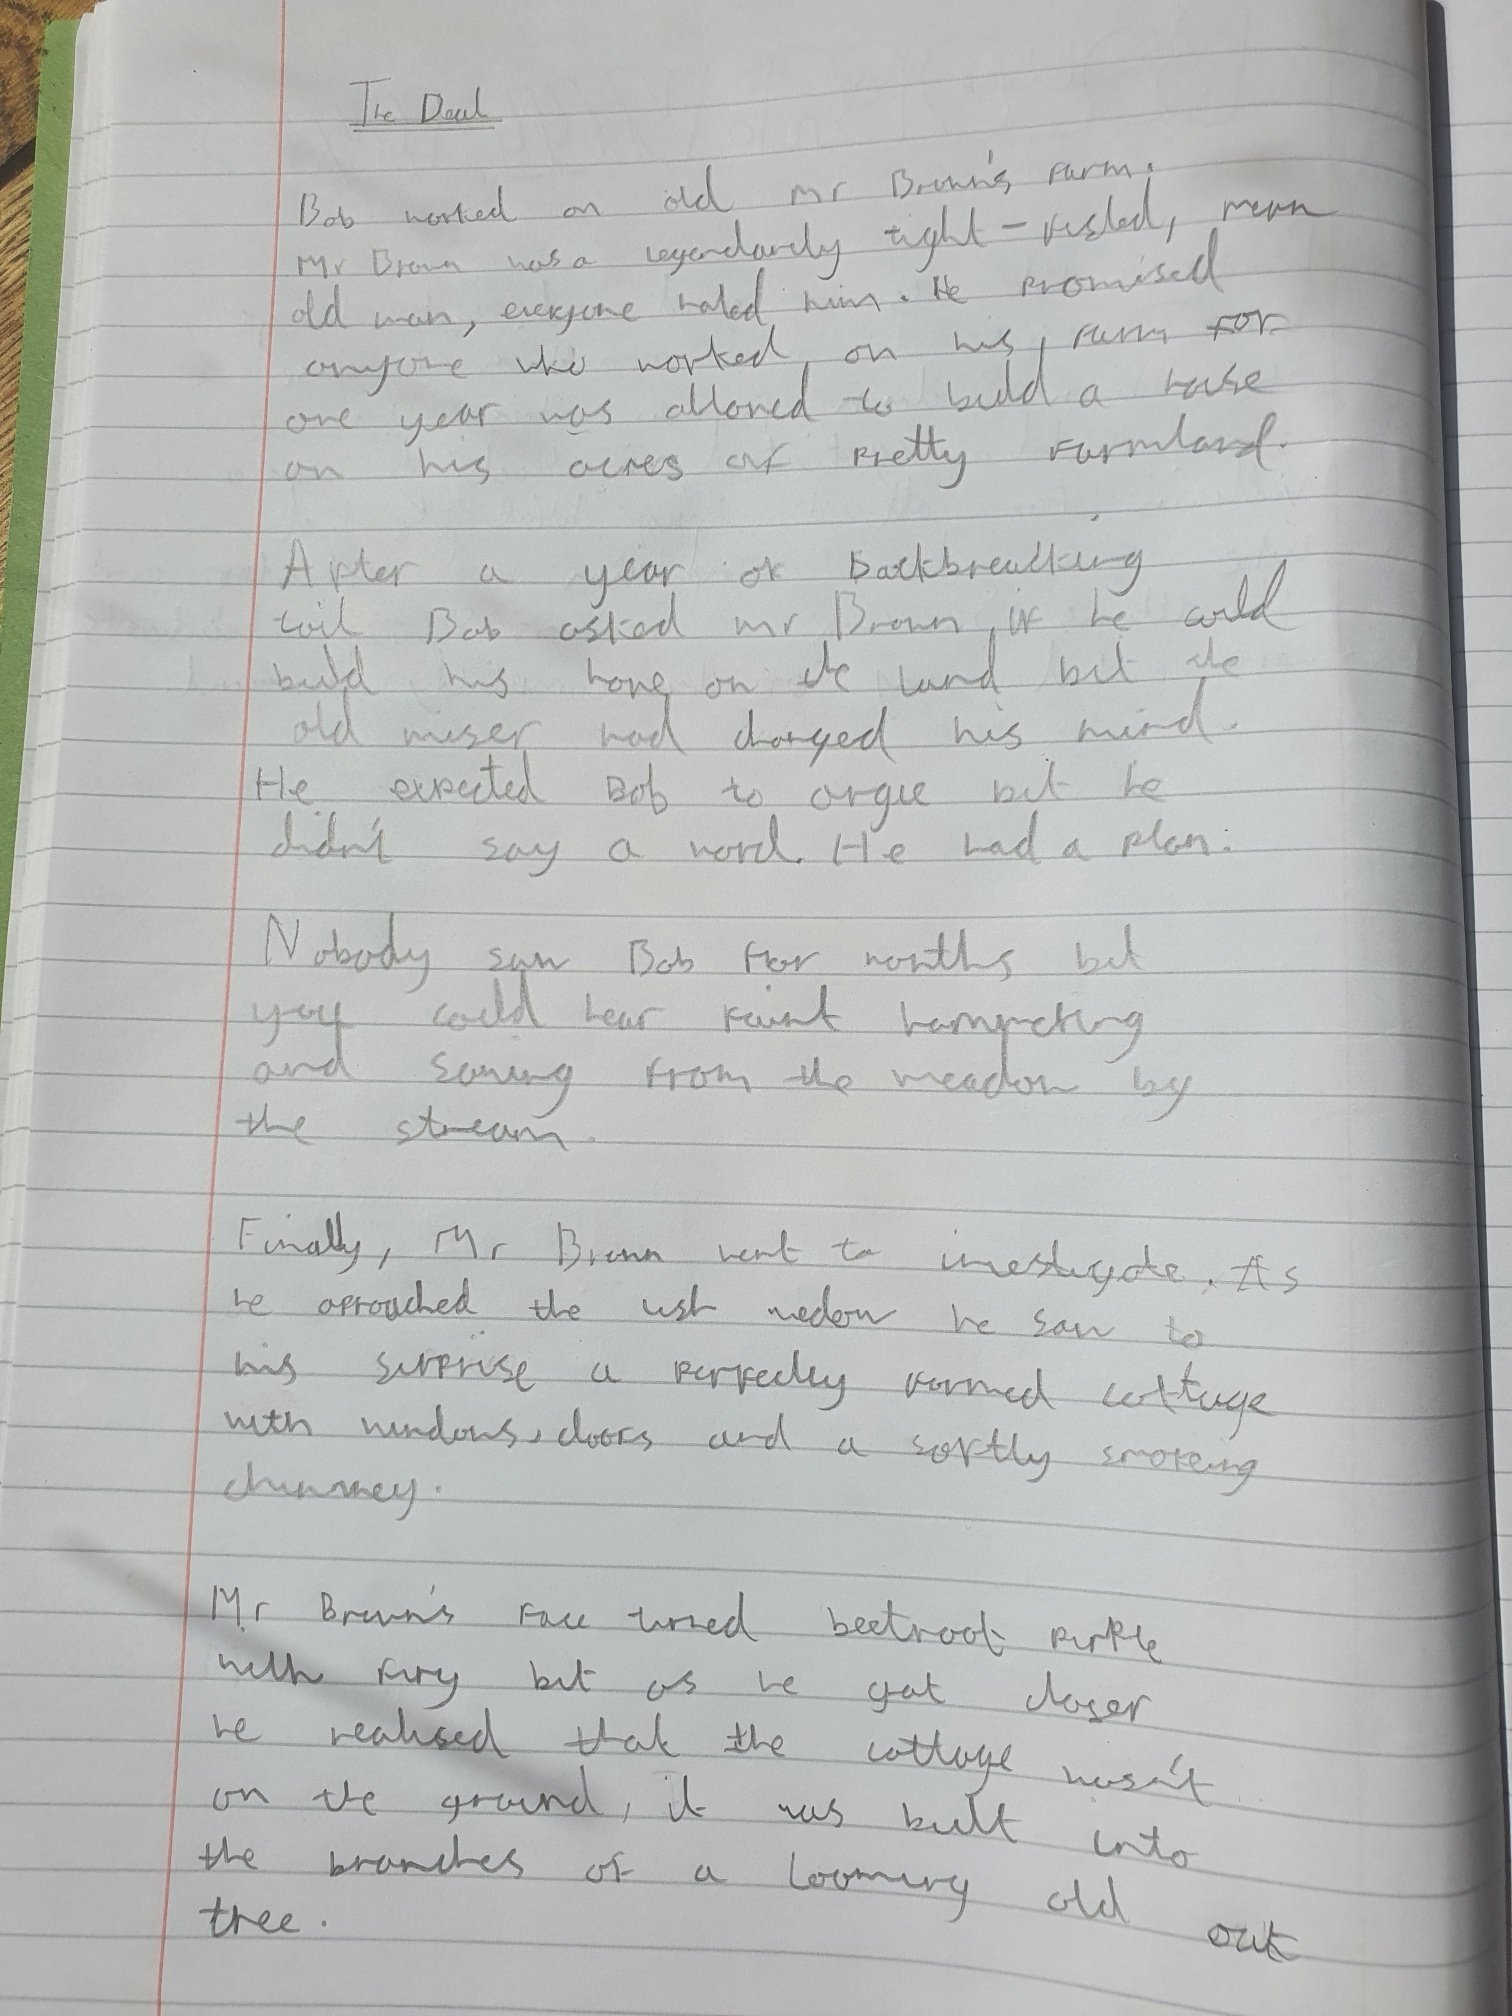 The Deal
Bob worked on old Mr Brown's farm.
Mr Brown was a legendarily tight-fisted, mean
old man, everyone hated him. He promised
anyone who worked on his farm for
one year was allowed to build a house
on his acres of pretty farmland.
After a year of backbreaking
toil Bob asked Mr Brown if he could
build his home on the land but the
old miser had changed his mind.
He expected Bob to argue but he
didn't say a word. He had a plan.
Nobody saw Bob for months but
you could hear faint hammering
and sawing from the meadow by
the stream.
Finally, Mr Brown went to investigate. As
he aproached the medow he saw to
his surprise a perfectly formed cottage
with windows, doors and a softly smoking
chimney.
Mr Brown's face turned beetroot purple
with fury but as he got closer
he realised that the cottage wasn't
on the ground, it was built into
the branches of a looming old oak
tree.